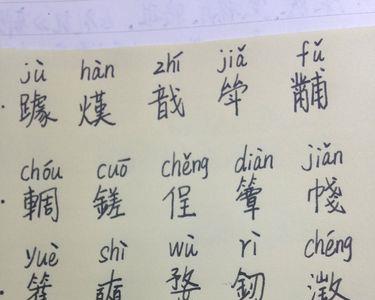 jù hàn zhí jiǎ fǔ
躆 熯 戠 黼
chóu cuō chěng diàn jiǎn
輖 鎈 侱 簟 帴
yuè shì wù rì chéng
婺 釰 澂